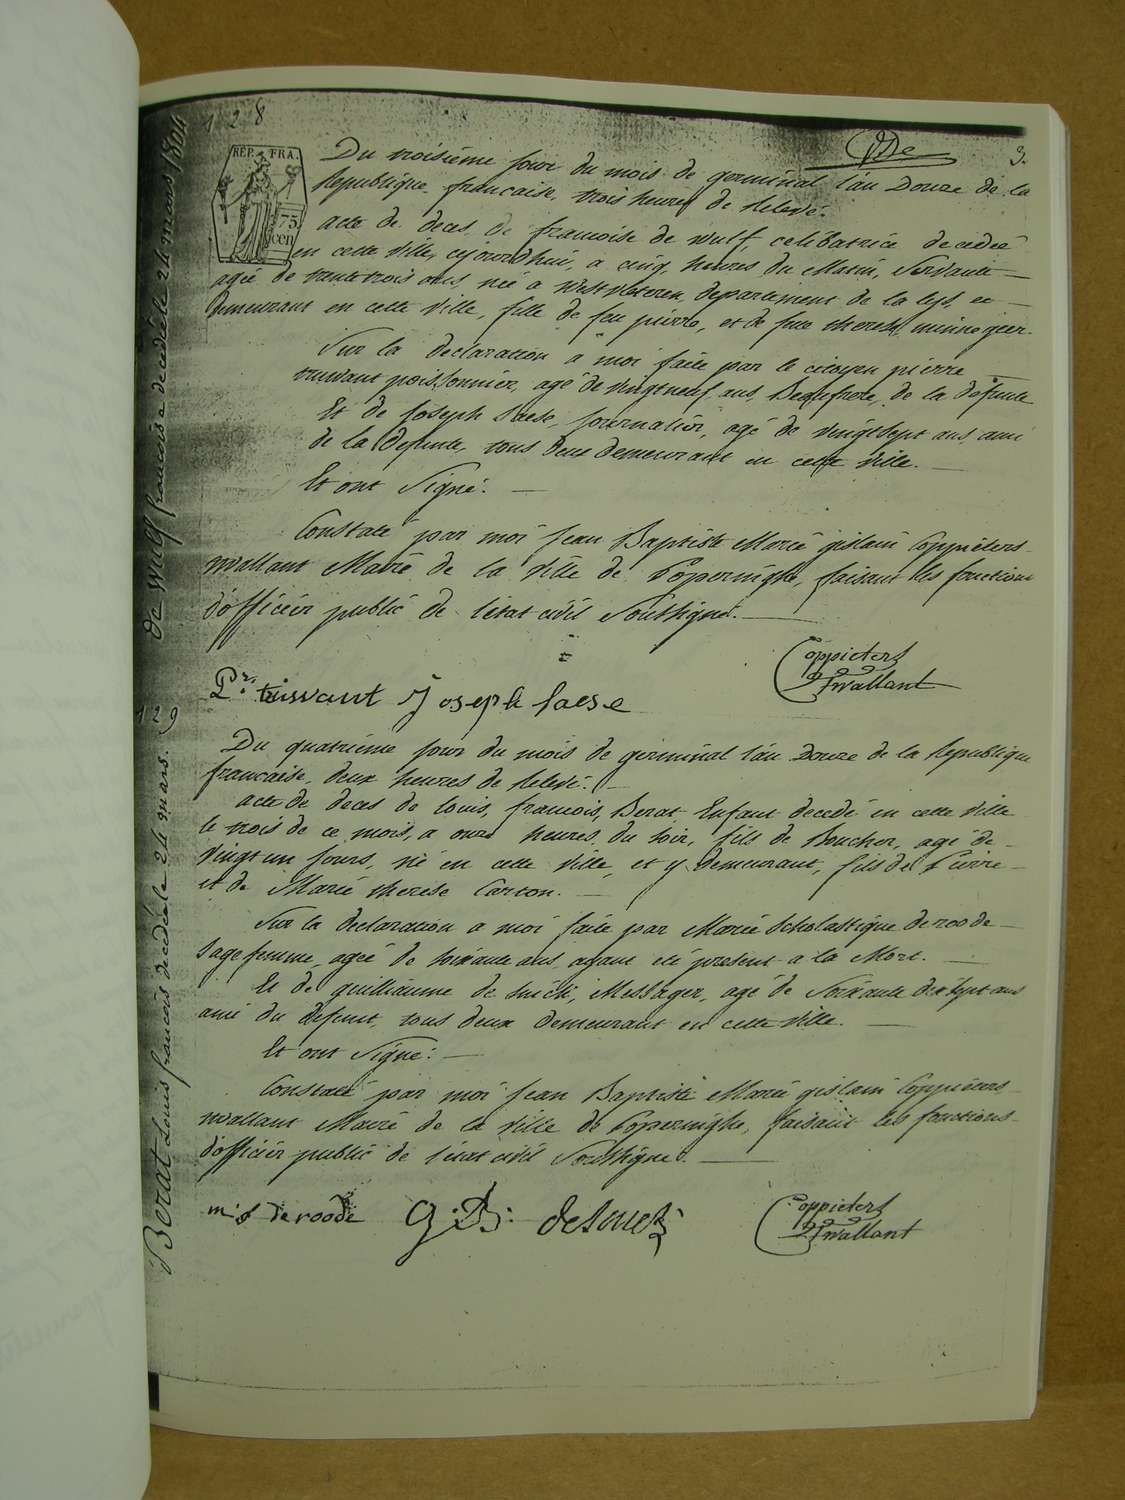 128
3.
RÉP. FRA.
75
cen
Du troisiéme jour du mois de germinal l'an Douze de la
Republique francaise, trois heures de relevé.
acte de deces de francoise de Wulf, celibatrice decedeé
en cette ville, cejourdhui, a cinq heures du Matin, Servante
ageé de trente trois ans, neé a Westvleteren, departement de la lys, et
demeurant en cette Ville, fille de feu pierre, et de feue therese minne geer.
Sur la declaration a moi faite par le citoyen pierre
truwant poissonnier, agé de vingtneuf ans, Beaufrere de la defunte
Et de Joseph Saese, journalier, agé de vingtsept ans ami
de la defunte, tous deux demeurant en cette Ville.
Et ont Signé.
Constaté par moi Jean Baptiste Marie gislain Coppieters
wallant Maire de la Ville de Poperinghe, faisant les fonctions
d'officier public de l'etat civil Soussigné.
Coppieters
wallant
Pr. truwant Joseph Saese
129
Du quatrieme jour du mois de germinal l'an Douze de la Republique
francaise, deux heures de relevé.
acte de deces de louis, francois, Berat Enfant decedé en cette Ville
le trois de ce mois, a onze heures du soir, fils de Boucher, agé de
vingt un jours, né en cette Ville, et y demeurant, fils de Pierre
et de Marie therese Carton.
Sur la declaration a moi faite par Marie Scholastique deroode
Sagefemme, ageé de soixante ans, ayant eté present a la Mort.
Et de guilliaume de smidt, Messager, agé de Soixante dixsept ans
ami du defunt, tous deux demeurant en cette Ville.
Et ont Signé.
Constaté par moi Jean Baptiste Marie gislain Coppieters
wallant Maire de la Ville de Poperinghe, faisant les fonctions
d'officier public de l'etat civil Soussigné.
m: s deroode G: D: desmedt
Coppieters
wallant
de Wulf francoise decedé le 24 mars 1804
Berat Louis francois decedé le 24 mars.